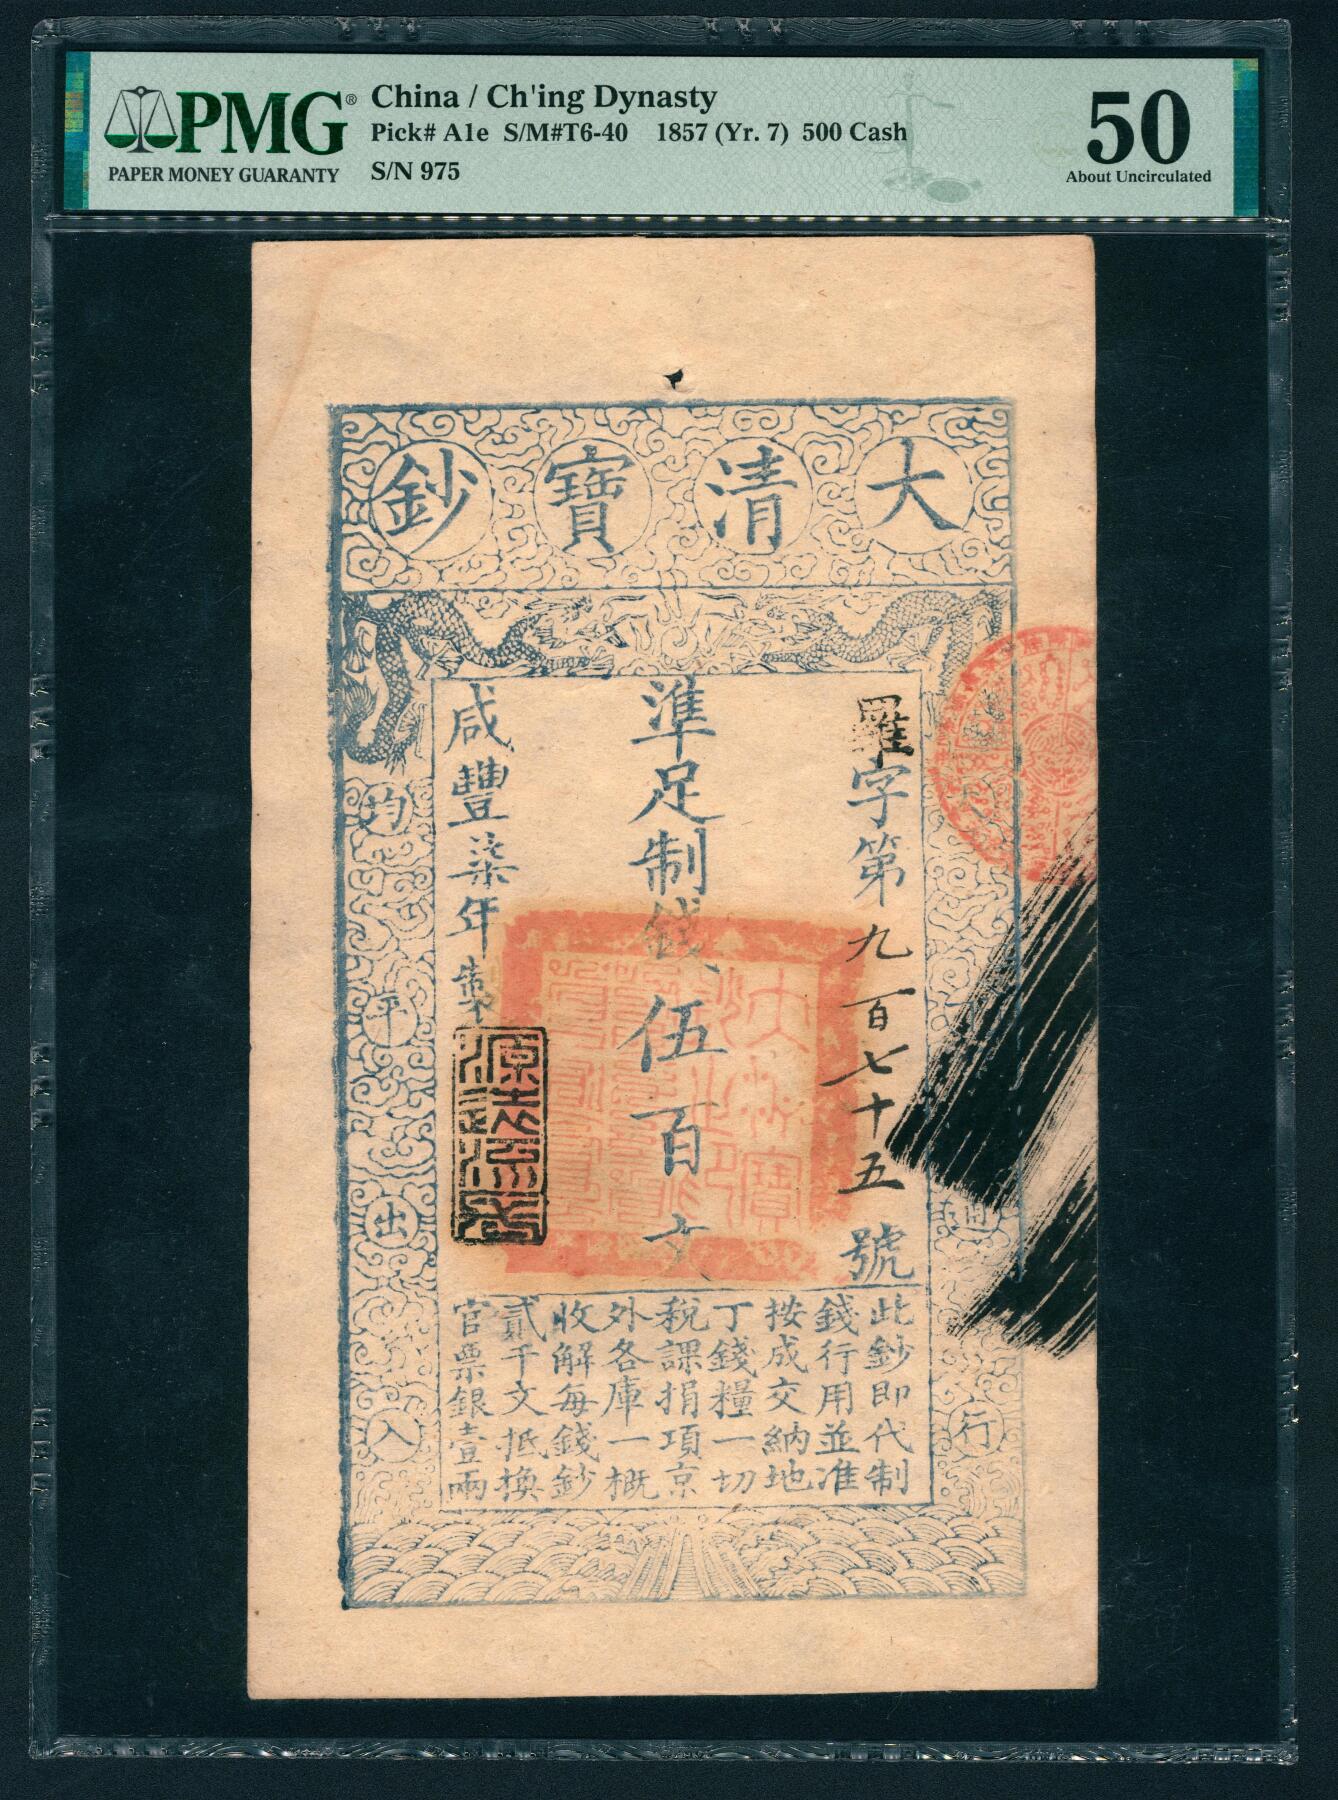 PMG®
PAPER MONEY GUARANTY
China / Ch'ing Dynasty
Pick# A1e S/M#T6-40 1857 (Yr. 7) 500 Cash
S/N 975
50
About Uncirculated
大清寶鈔
羅字第九百七十五號
準足制錢伍百文
咸豐柒年製
源遠流長
大清寶鈔之印
行
均平出入
此鈔即代制
錢行用並准
按成交納地
丁錢糧一切
稅課捐項京
外各庫一概
收解每錢鈔
貳千文抵換
官票銀壹兩